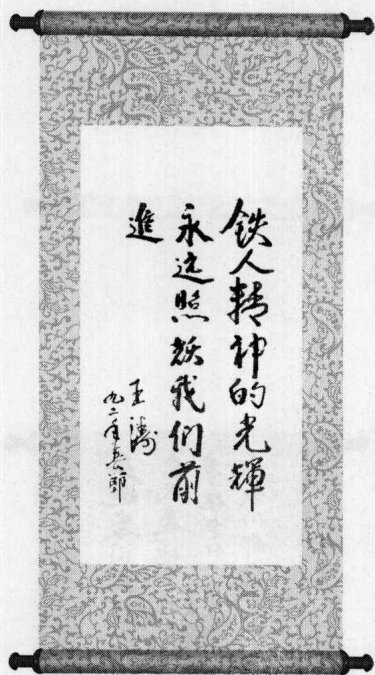 鉄人精神的光輝
永远照耀我们前
進
王涛
九二年春節